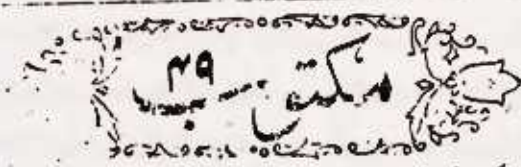 مکتوب ۴۹